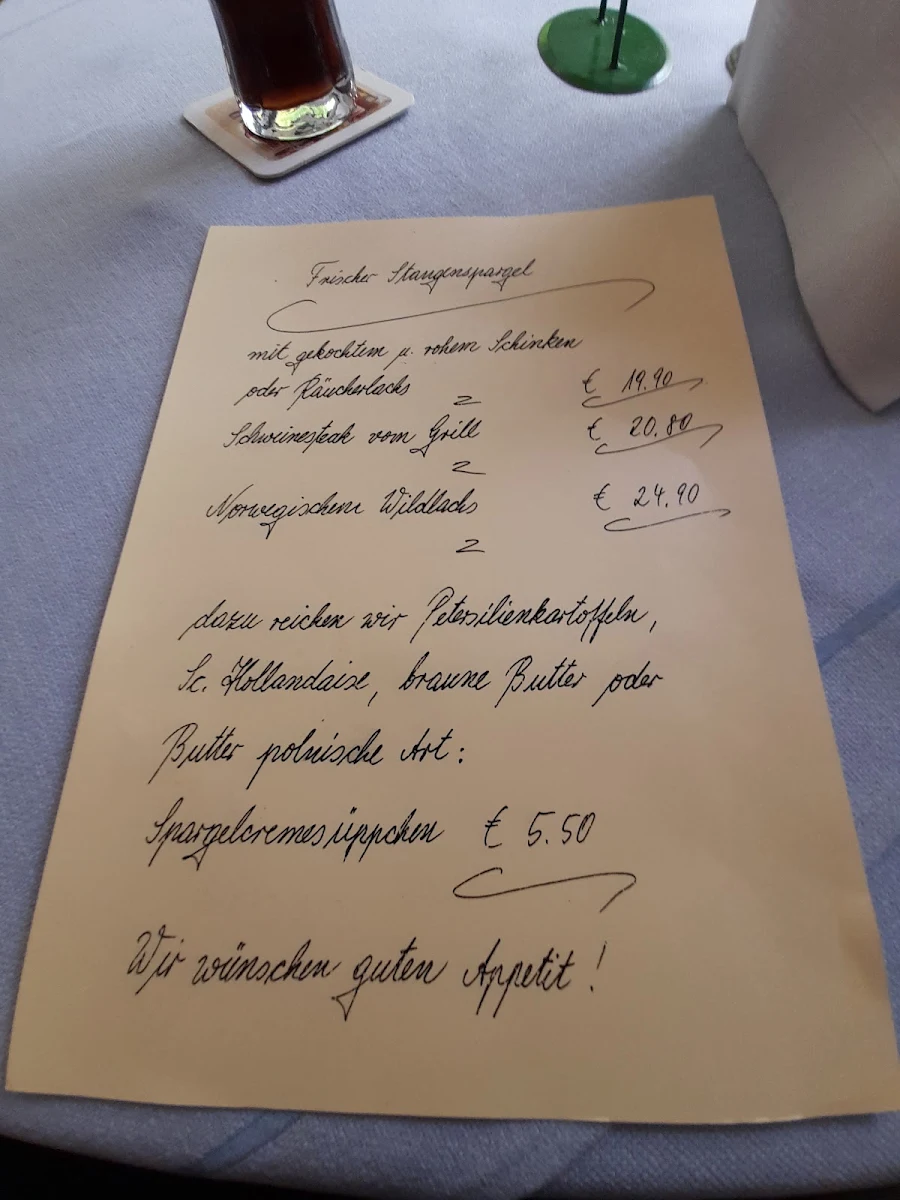 Frischer Stangenspargel
mit gekochtem u. rohem Schinken
oder Räucherlachs € 19.90
Schweinesteak vom Grill € 20.80
Norwegischem Wildlachs € 24.90
dazu reichen wir Petersilienkartoffeln,
Sc. Hollandaise, braune Butter oder
Butter polnische Art:
Spargelcremesüppchen € 5.50
Wir wünschen guten Appetit!